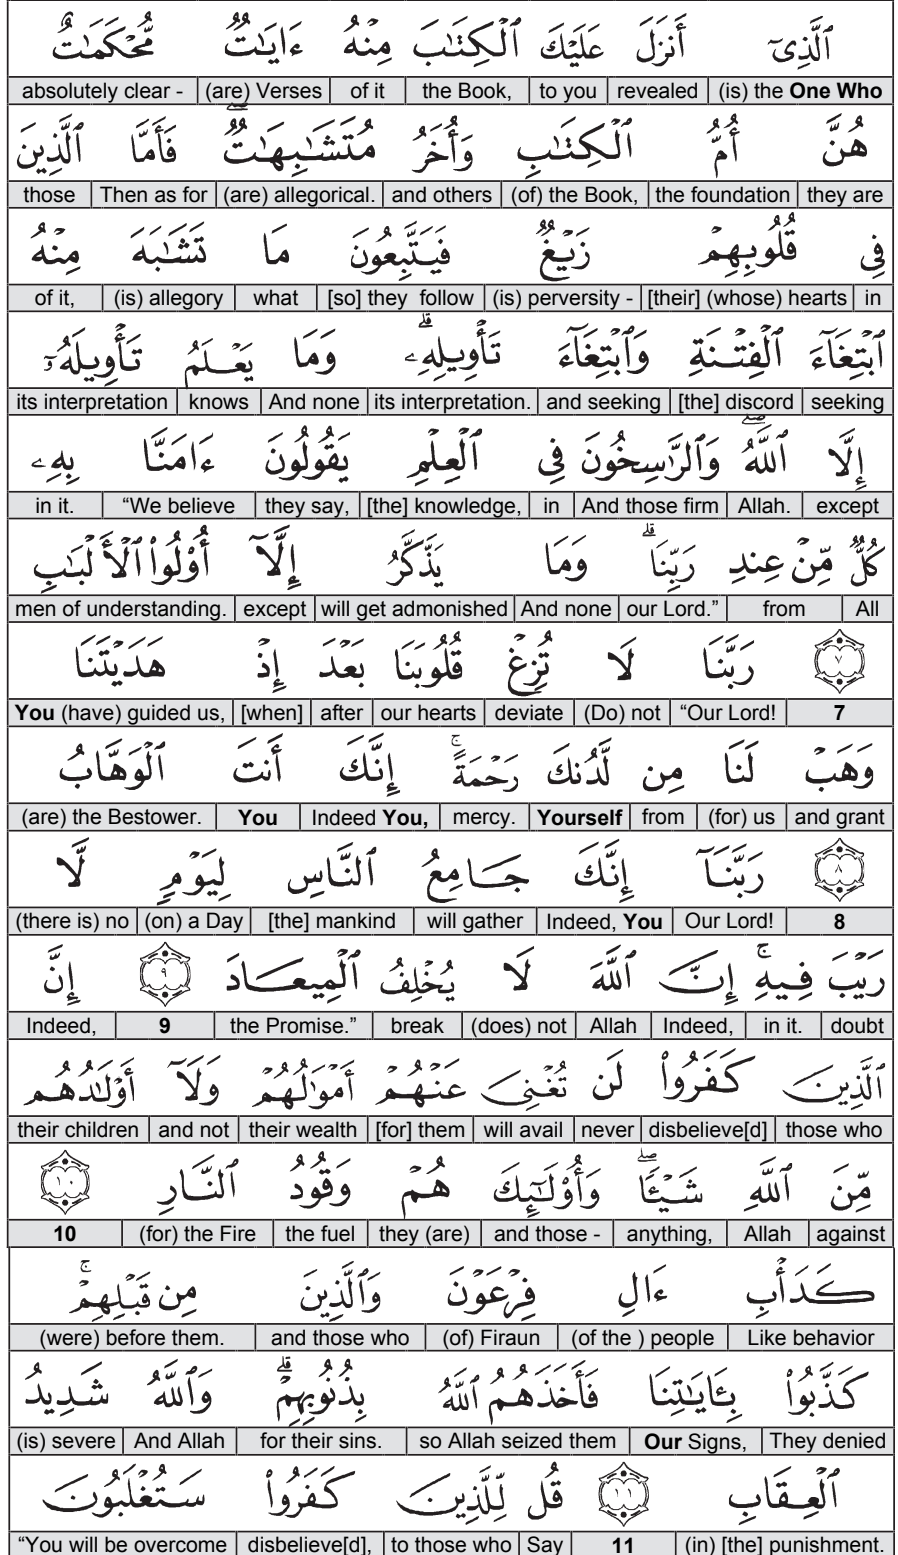 ٱلَّذِىٓ أَنزَلَ عَلَيْكَ ٱلْكِتَـٰبَ مِنْهُ ءَايَـٰتٌ مُّحْكَمَـٰتٌ
(is) the One Who | revealed | to you | the Book, | of it | (are) Verses | absolutely clear -
هُنَّ أُمُّ ٱلْكِتَـٰبِ وَأُخَرُ مُتَشَـٰبِهَـٰتٌ ۖ فَأَمَّا ٱلَّذِينَ
they are | the foundation | (of) the Book, | and others | (are) allegorical. | Then as for | those
فِى قُلُوبِهِمْ زَيْغٌ فَيَتَّبِعُونَ مَا تَشَـٰبَهَ مِنْهُ
in | [their] (whose) hearts | (is) perversity - | [so] they follow | what | (is) allegory | of it,
ٱبْتِغَآءَ ٱلْفِتْنَةِ وَٱبْتِغَآءَ تَأْوِيلِهِۦ ۗ وَمَا يَعْلَمُ تَأْوِيلَهُۥٓ
seeking | [the] discord | and seeking | its interpretation. | And none | knows | its interpretation
إِلَّا ٱللَّهُ ۖ وَٱلرَّٰسِخُونَ فِى ٱلْعِلْمِ يَقُولُونَ ءَامَنَّا بِهِۦ
except | Allah. | And those firm | in | [the] knowledge, | they say, | “We believe | in it.
كُلٌّ مِّنْ عِندِ رَبِّنَا ۗ وَمَا يَذَّكَّرُ إِلَّآ أُو۟لُوا۟ ٱلْأَلْبَـٰبِ
All | from | our Lord.” | And none | will get admonished | except | men of understanding.
٧ رَبَّنَا لَا تُزِغْ قُلُوبَنَا بَعْدَ إِذْ هَدَيْتَنَا
7 | “Our Lord! | (Do) not | deviate | our hearts | after | [when] | You (have) guided us,
وَهَبْ لَنَا مِن لَّدُنكَ رَحْمَةً ۚ إِنَّكَ أَنتَ ٱلْوَهَّابُ
and grant | (for) us | from | Yourself | mercy. | Indeed You, | You | (are) the Bestower.
٨ رَبَّنَآ إِنَّكَ جَامِعُ ٱلنَّاسِ لِيَوْمٍ لَّا
8 | Our Lord! | Indeed, You | will gather | [the] mankind | (on) a Day | (there is) no
رَيْبَ فِيهِ ۚ إِنَّ ٱللَّهَ لَا يُخْلِفُ ٱلْمِيعَادَ ٩ إِنَّ
doubt | in it. | Indeed, | Allah | (does) not | break | the Promise.” | 9 | Indeed,
ٱلَّذِينَ كَفَرُوا۟ لَن تُغْنِىَ عَنْهُمْ أَمْوَٰلُهُمْ وَلَآ أَوْلَـٰدُهُم
those who | disbelieve[d] | never | will avail | [for] them | their wealth | and not | their children
مِّنَ ٱللَّهِ شَيْـًٔا ۖ وَأُو۟لَـٰٓئِكَ هُمْ وَقُودُ ٱلنَّارِ ١٠
against | Allah | anything, | and those - | they (are) | the fuel | (for) the Fire | 10
كَدَأْبِ ءَالِ فِرْعَوْنَ وَٱلَّذِينَ مِن قَبْلِهِمْ ۚ
Like behavior | (of the ) people | (of) Firaun | and those who | (were) before them.
كَذَّبُوا۟ بِـَٔايَـٰتِنَا فَأَخَذَهُمُ ٱللَّهُ بِذُنُوبِهِمْ ۗ وَٱللَّهُ شَدِيدُ
They denied | Our Signs, | so Allah seized them | for their sins. | And Allah | (is) severe
ٱلْعِقَابِ ١١ قُل لِّلَّذِينَ كَفَرُوا۟ سَتُغْلَبُونَ
(in) [the] punishment. | 11 | Say | to those who | disbelieve[d], | “You will be overcome